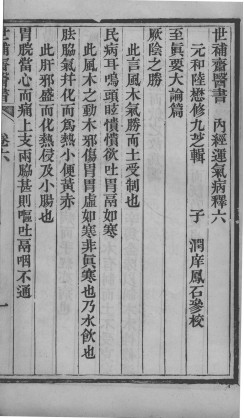 世補齋醫書　內經運氣病釋六
元和陸懋修九芝輯　子　潤庠鳳石參校
至眞要大論篇
厥陰之勝
此言風木氣勝而土受制也
民病耳鳴頭眩憒憒欲吐胃鬲如寒
此風木之動木邪傷胃胃虛如寒非眞寒也乃水飲也
胠脇氣幷化而爲熱小便黃赤
此肝邪盛而化熱侵及小腸也
胃脘當心而痛上支兩脇甚則嘔吐鬲咽不通
世補齋醫書
卷六
一